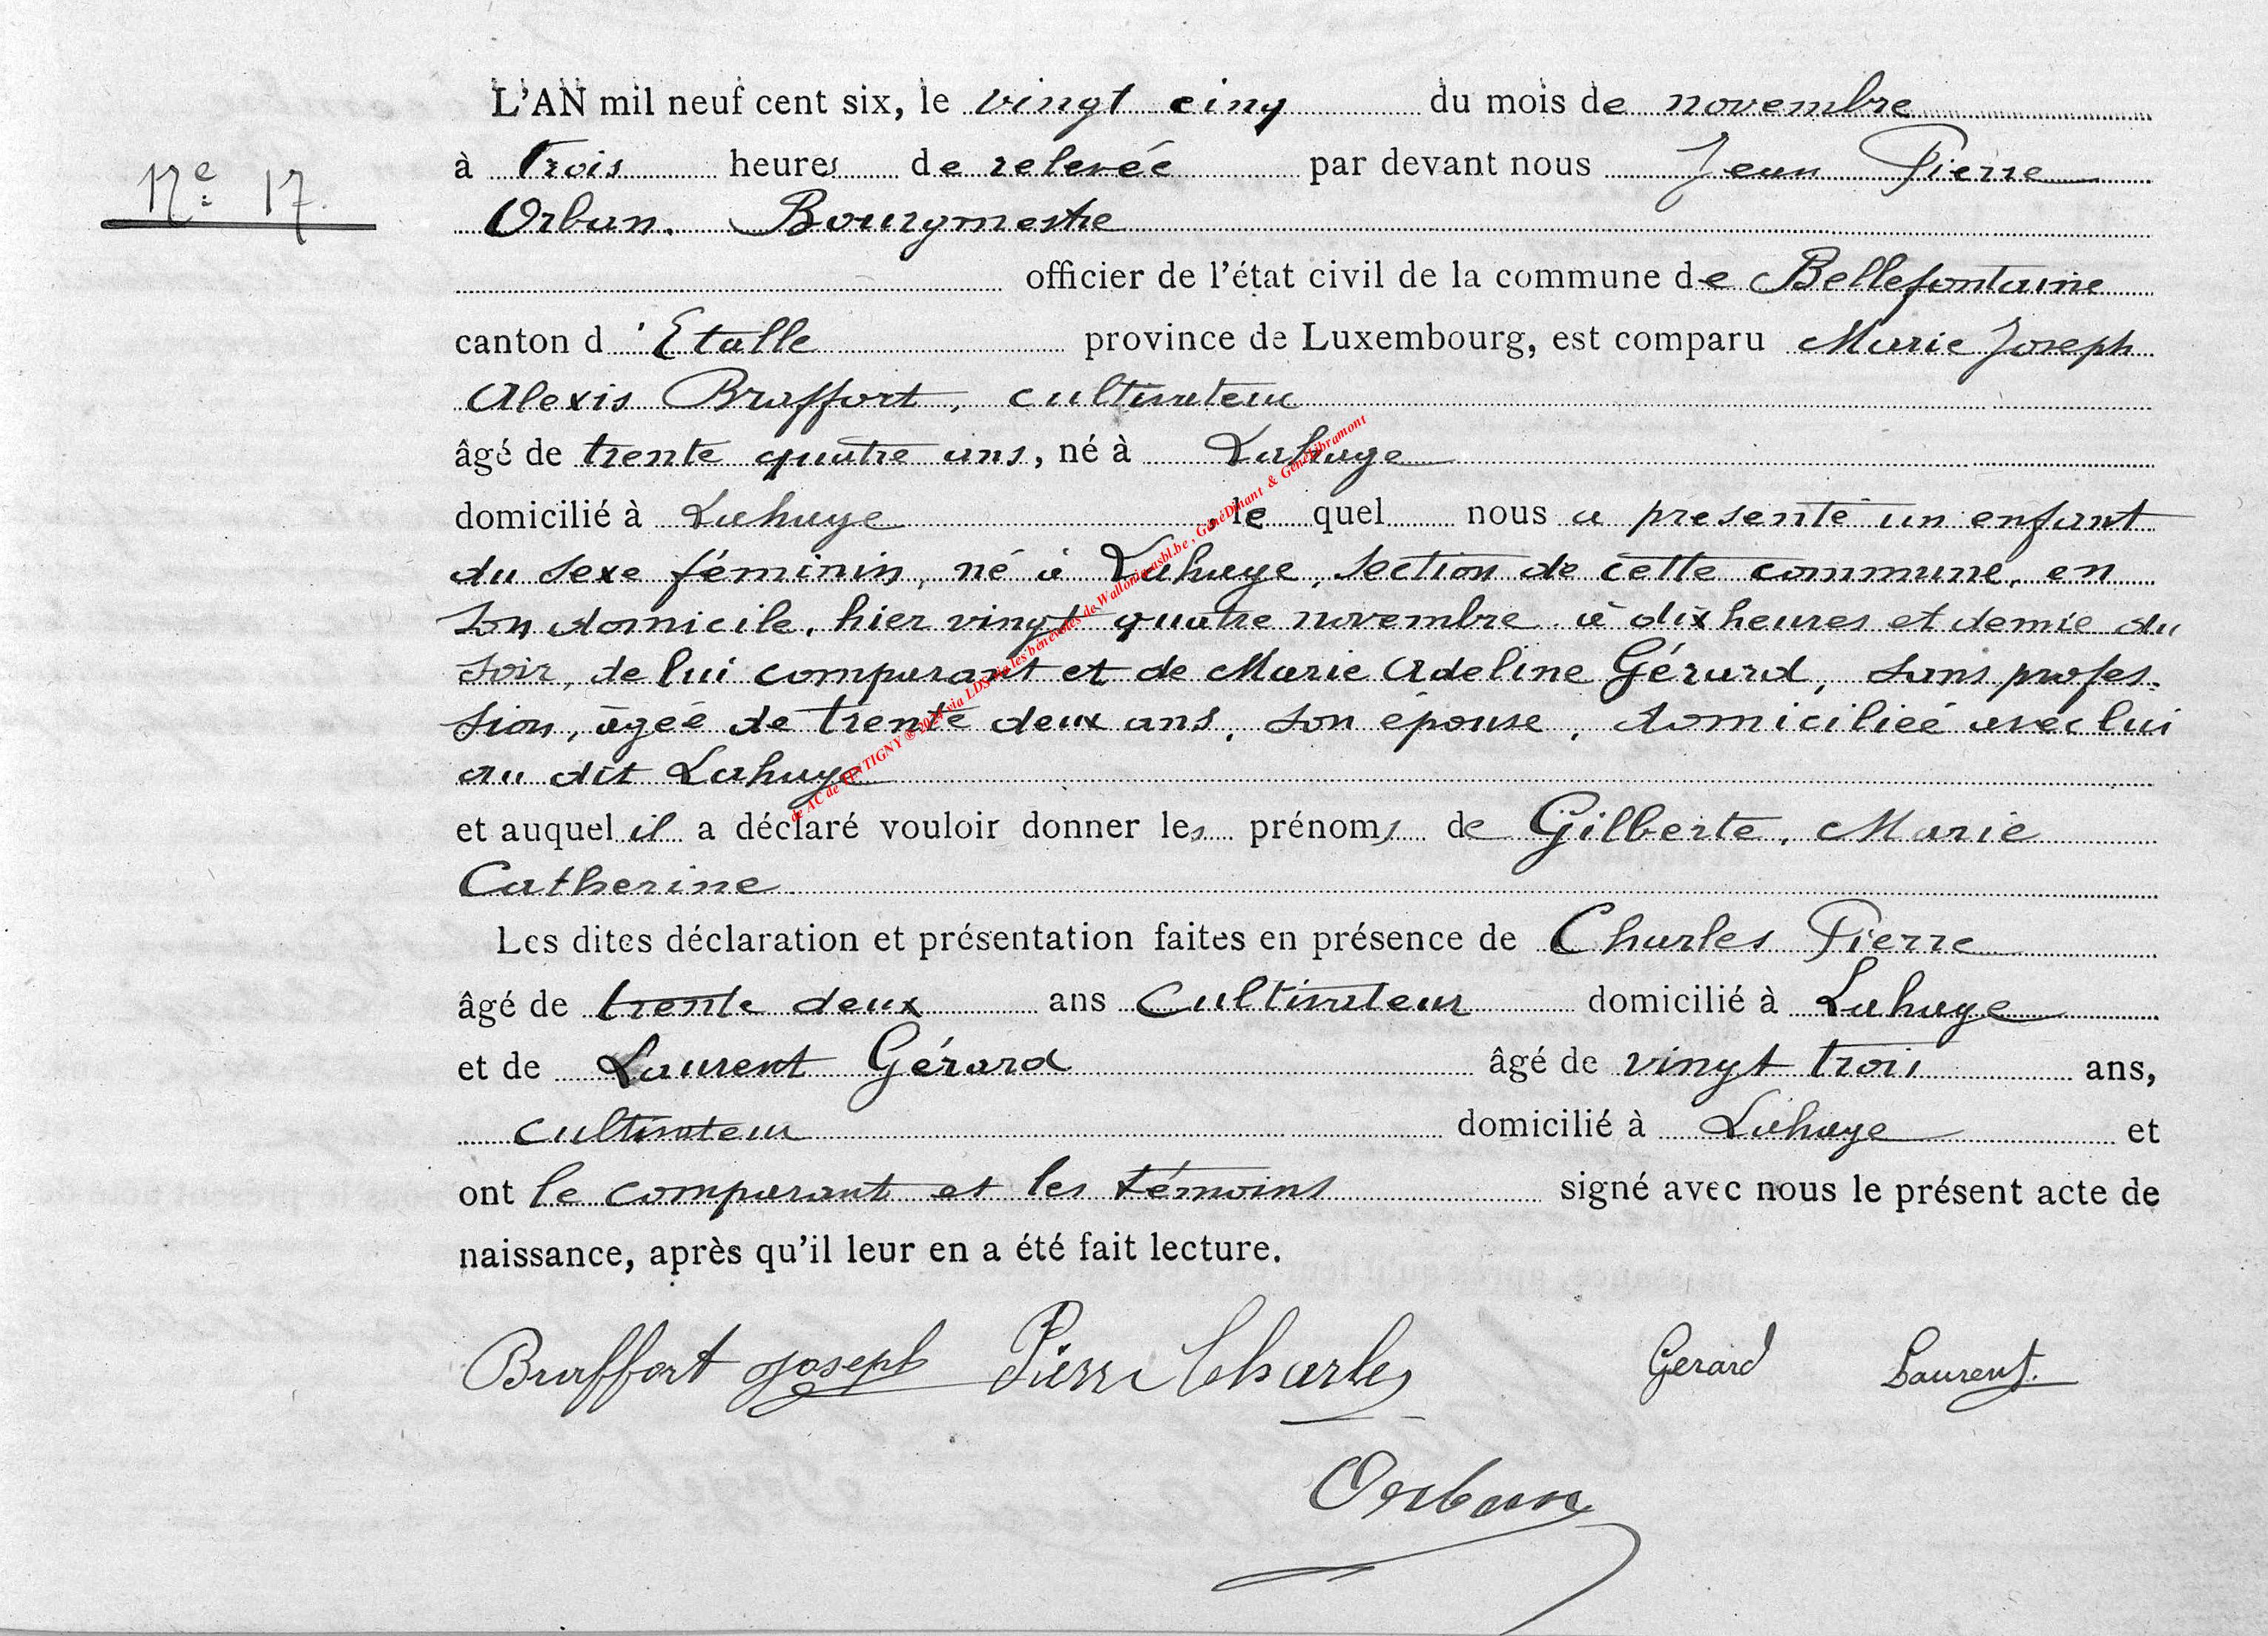 L'AN mil neuf cent six, le vingt cinq du mois de novembre
à trois heures de relevée par devant nous Jean Pierre
Nº 17.
Orban, Bourgmestre
officier de l'état civil de la commune de Bellefontaine
canton d'Etalle province de Luxembourg, est comparu Marie Joseph
Alexis Braffort, cultivateur
âgé de trente quatre ans, né à Lahage
domicilié à Lahage lequel nous a présenté un enfant
du sexe féminin, né à Lahage, section de cette commune, en
son domicile, hier vingt quatre novembre à dix heures et demie du
soir, de lui comparant et de Marie Adeline Gérard, sans profes-
sion, âgée de trente deux ans, son épouse, domiciliée avec lui
au dit Lahage
et auquel il a déclaré vouloir donner les prénoms de Gilberte, Marie
Catherine
Les dites déclaration et présentation faites en présence de Charles Pierre
âgé de trente deux ans cultivateur domicilié à Lahage
et de Laurent Gérard âgé de vingt trois ans,
cultivateur domicilié à Lahage et
ont le comparant et les témoins signé avec nous le présent acte de
naissance, après qu'il leur en a été fait lecture.
Braffort Joseph Pierre Charles Gerard Laurent.
Orban
de AC de TINTIGNY ® 2024 via LDS via les bénévoles de Wallonia-asbl.be, GénéDinant & GénéLibramont